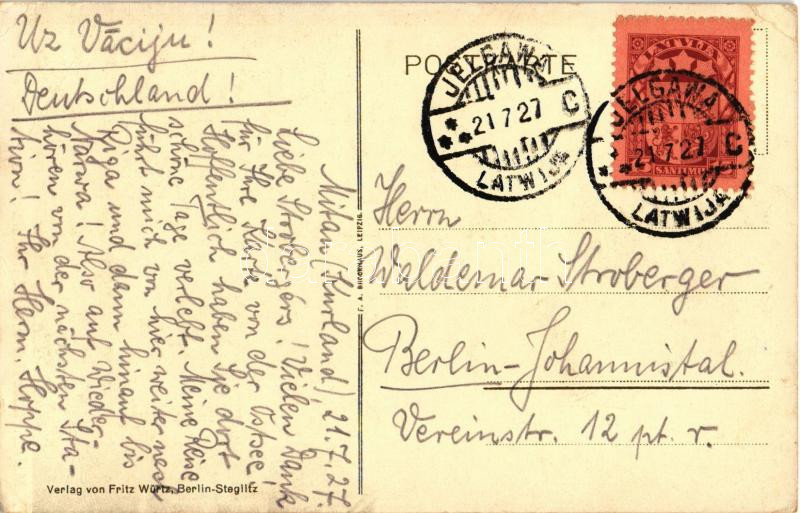 Uz Vāciju!
Deutschland!
Mitau (Kurland), 21.7.27.
Liebe Strobergers! Vielen Dank
für Ihre Karte von der Ostsee!
Hoffentlich haben Sie dort
schöne Tage verlebt. Meine Reise
führt mich von hier weiter nach
Riga und dann hinauf bis
Narwa! Also auf Wieder-
hören von der nächsten Sta-
tion! Ihr Herm. Hoppe.
Verlag von Fritz Würtz, Berlin-Steglitz
F. A. BROCKHAUS, LEIPZIG.
POSTKARTE
JELGAWA
21 7 27
C
LATWIJA
LATVIJA
SANTIMU
JELGAWA
21.7.27
C
LATWIJA
Herrn
Waldemar Stroberger
Berlin-Johannistal.
Vereinstr. 12 pt. r.